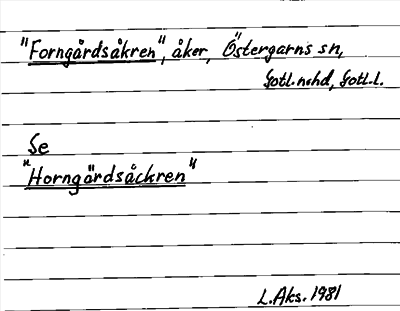 "Forngårdsåkren", åker, Östergarns sn,
Gotl. n. hd, Gotl. l.
Se
"Horngårdsåckren"
L. Aks. 1981